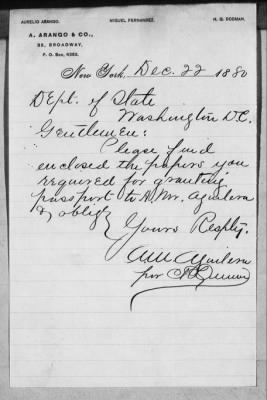 AURELIO ARANGO. MIGUEL FERNANDEZ. H. G. DOSMAN.
A. ARANGO & CO.,
BROADWAY,
P. O. Box,
New York, Dec. 22 1880
Dept. of State
Washington D.C.
Gentlemen:
Please find
enclosed the papers you
required for granting
passport to Aguilera
& oblige
Yours Resply.
Aguilera
por